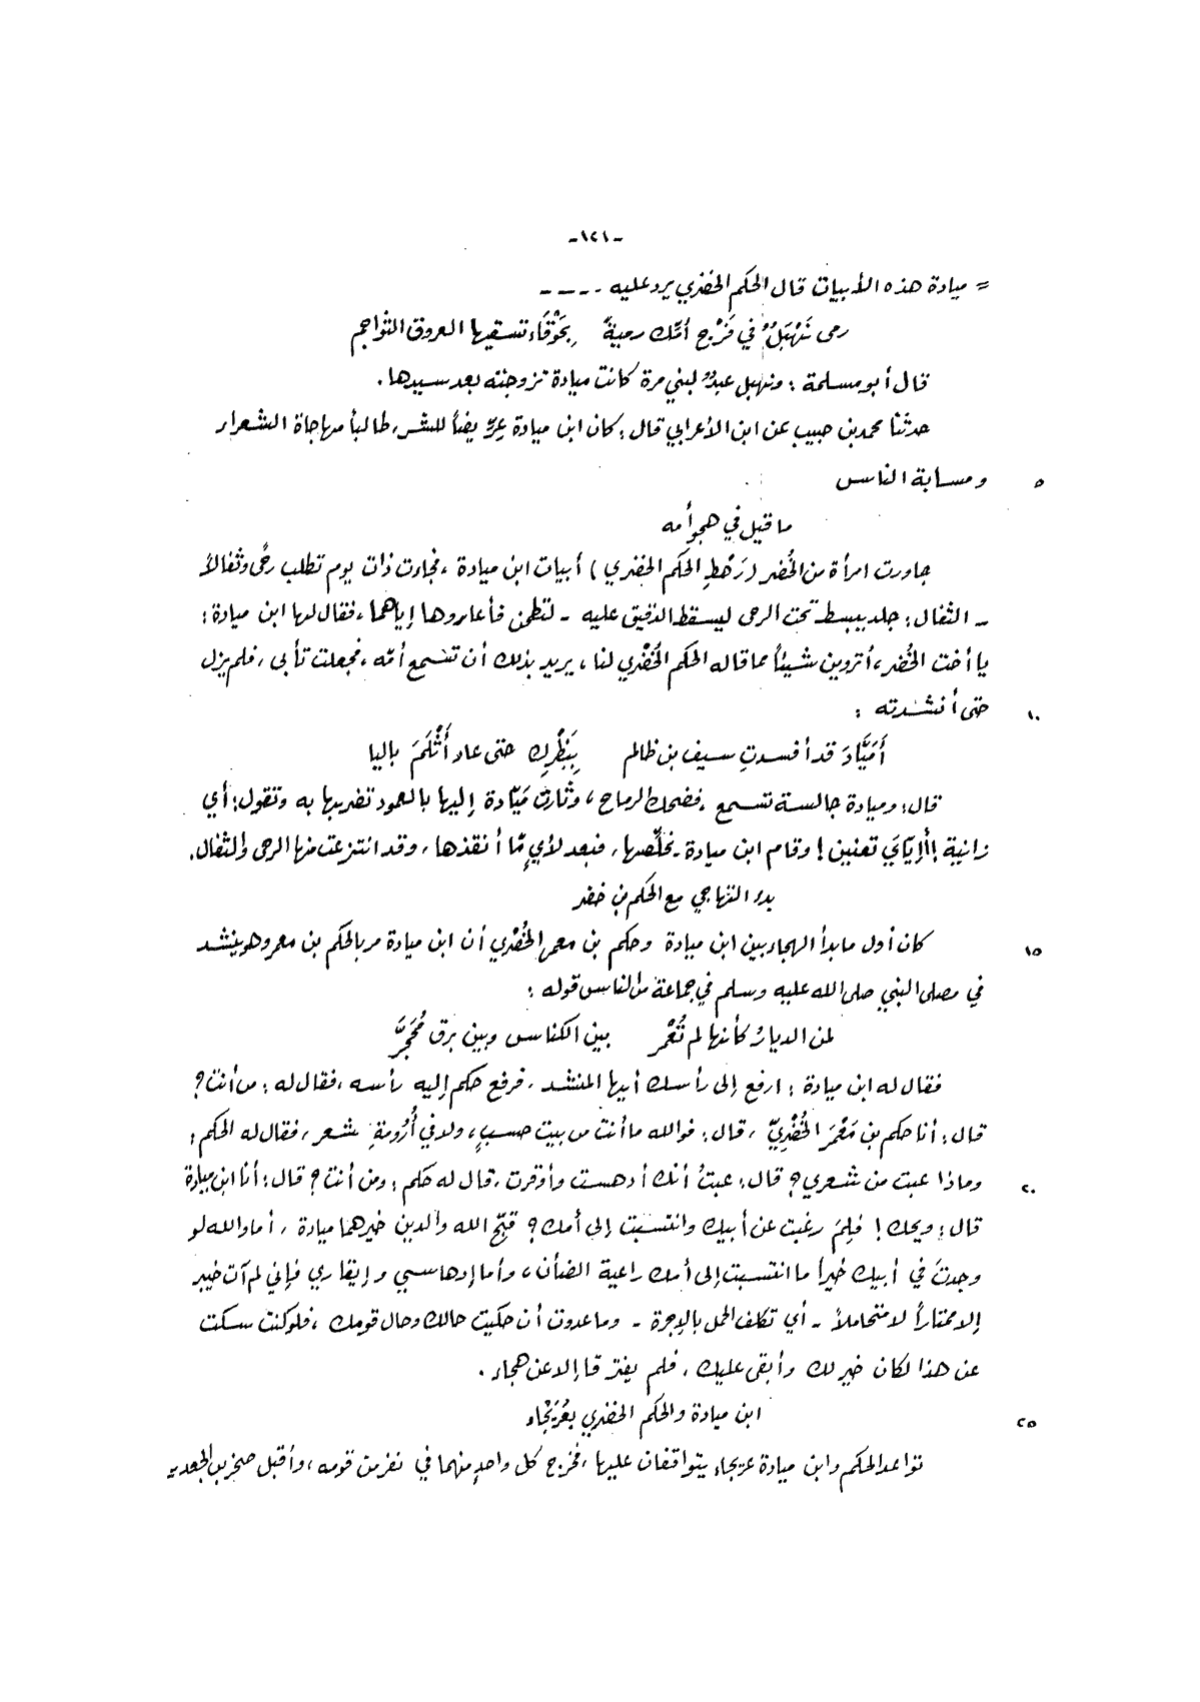 -١٢١-
= ميادة هذه الأبيات قال الحكم الخضري يرد عليه - - - -
رمى نَهْبَلٌ في فَرْجِ أُمّك رميةً بِحَوْقَاءَ تسقيها العروق الثواجم
قال أبو مسلمة : ونهبل عبدٌ لبني مرة كانت ميادة تزوجته بعد سيدها .
حدثنا محمد بن حبيب عن ابن الأعرابي قال : كان ابن ميادة عِرِّيضاً للشر، طالباً مهاجاة الشعراء
٥ ومسابة الناس
ما قيل في هجو أمه
جاورت امرأة من الخُضر (رَهْطِ الحكم الخضري) أبيات ابن ميادة ، فجاءت ذات يوم تطلب رحًى وثفالاً
- الثفال : جلد يبسط تحت الرحى ليسقط الدقيق عليه - لتطحن فأعاروها إياهما ، فقال لها ابن ميادة :
يا أخت الخُضر ، أتروين شيئاً مما قاله الحكم الخُضْري لنا ، يريد بذلك أن تسمع أمّه ، فجعلت تأبى ، فلم يزل
١٠ حتى أنشدته :
أَمَيَّادَ قد أفسدتِ سيف بن ظالم بِبَظْرِكِ حتى عاد أَثْلَمَ باليا
قال : وميادة جالسة تسمع ، فضحك الرماح ، وثارت مَيّادة إليها بالعمود تضربها به وتقول : أي
زانية ! أإيّايَ تعنين ! وقام ابن ميادة يخلّصها ، فبعد لأيٍ مّا أنقذها ، وقد انتزعت منها الرحى والثفال .
بدء التهاجي مع الحكم بن خضر
١٥ كان أول ما بدأ الهجاء بين ابن ميادة وحكم بن معمر الخُضْري أن ابن ميادة مر بالحكم بن معمر وهو ينشد
في مصلى النبي صلى الله عليه وسلم في جماعة من الناس قوله :
لمن الديارُ كأنها لم تُعْمر بين الكناس وبين برق مُحَجَّر
فقال له ابن ميادة : ارفع إلى رأسك أيها المنشد ، فرفع حكم إليه رأسه ، فقال له : من أنت ؟
قال : أنا حكم بن مَعْمَر الخُضْريّ ، قال : فوالله ما أنت من بيت حسبٍ ، ولا في أُرُومةِ شعر ، فقال له الحكم :
٢٠ وماذا عبت من شعري ؟ قال : عبتُ أنك أدهست وأوقرت ، قال له حكم : ومن أنت ؟ قال : أنا ابن ميادة
قال : ويحك ! فلِمَ رغبت عن أبيك وانتسبت إلى أمك ؟ قبّح الله والدين خيرهما ميادة ، أما والله لو
وجدتَ في أبيك خيراً ما انتسبت إلى أمك راعية الضأن ، وأما إدهاسي وإيقاري فإني لم آت خيبر
إلا ممتاراً لا متحاملاً - أي تكلف الحمل بالإجرة - وما عدوت أن حكيت حالك وحال قومك ، فلو كنت سكت
عن هذا لكان خير لك وأبقى عليك ، فلم يفترقا إلا عن هجاء .
٢٥ ابن ميادة والحكم الخضري بعُرَيْجاء
تواعد الحكم وابن ميادة عريجاء يتواقفان عليها ، فخرج كل واحد منهما في نفر من قومه ، وأقبل صخر بن الجعد =